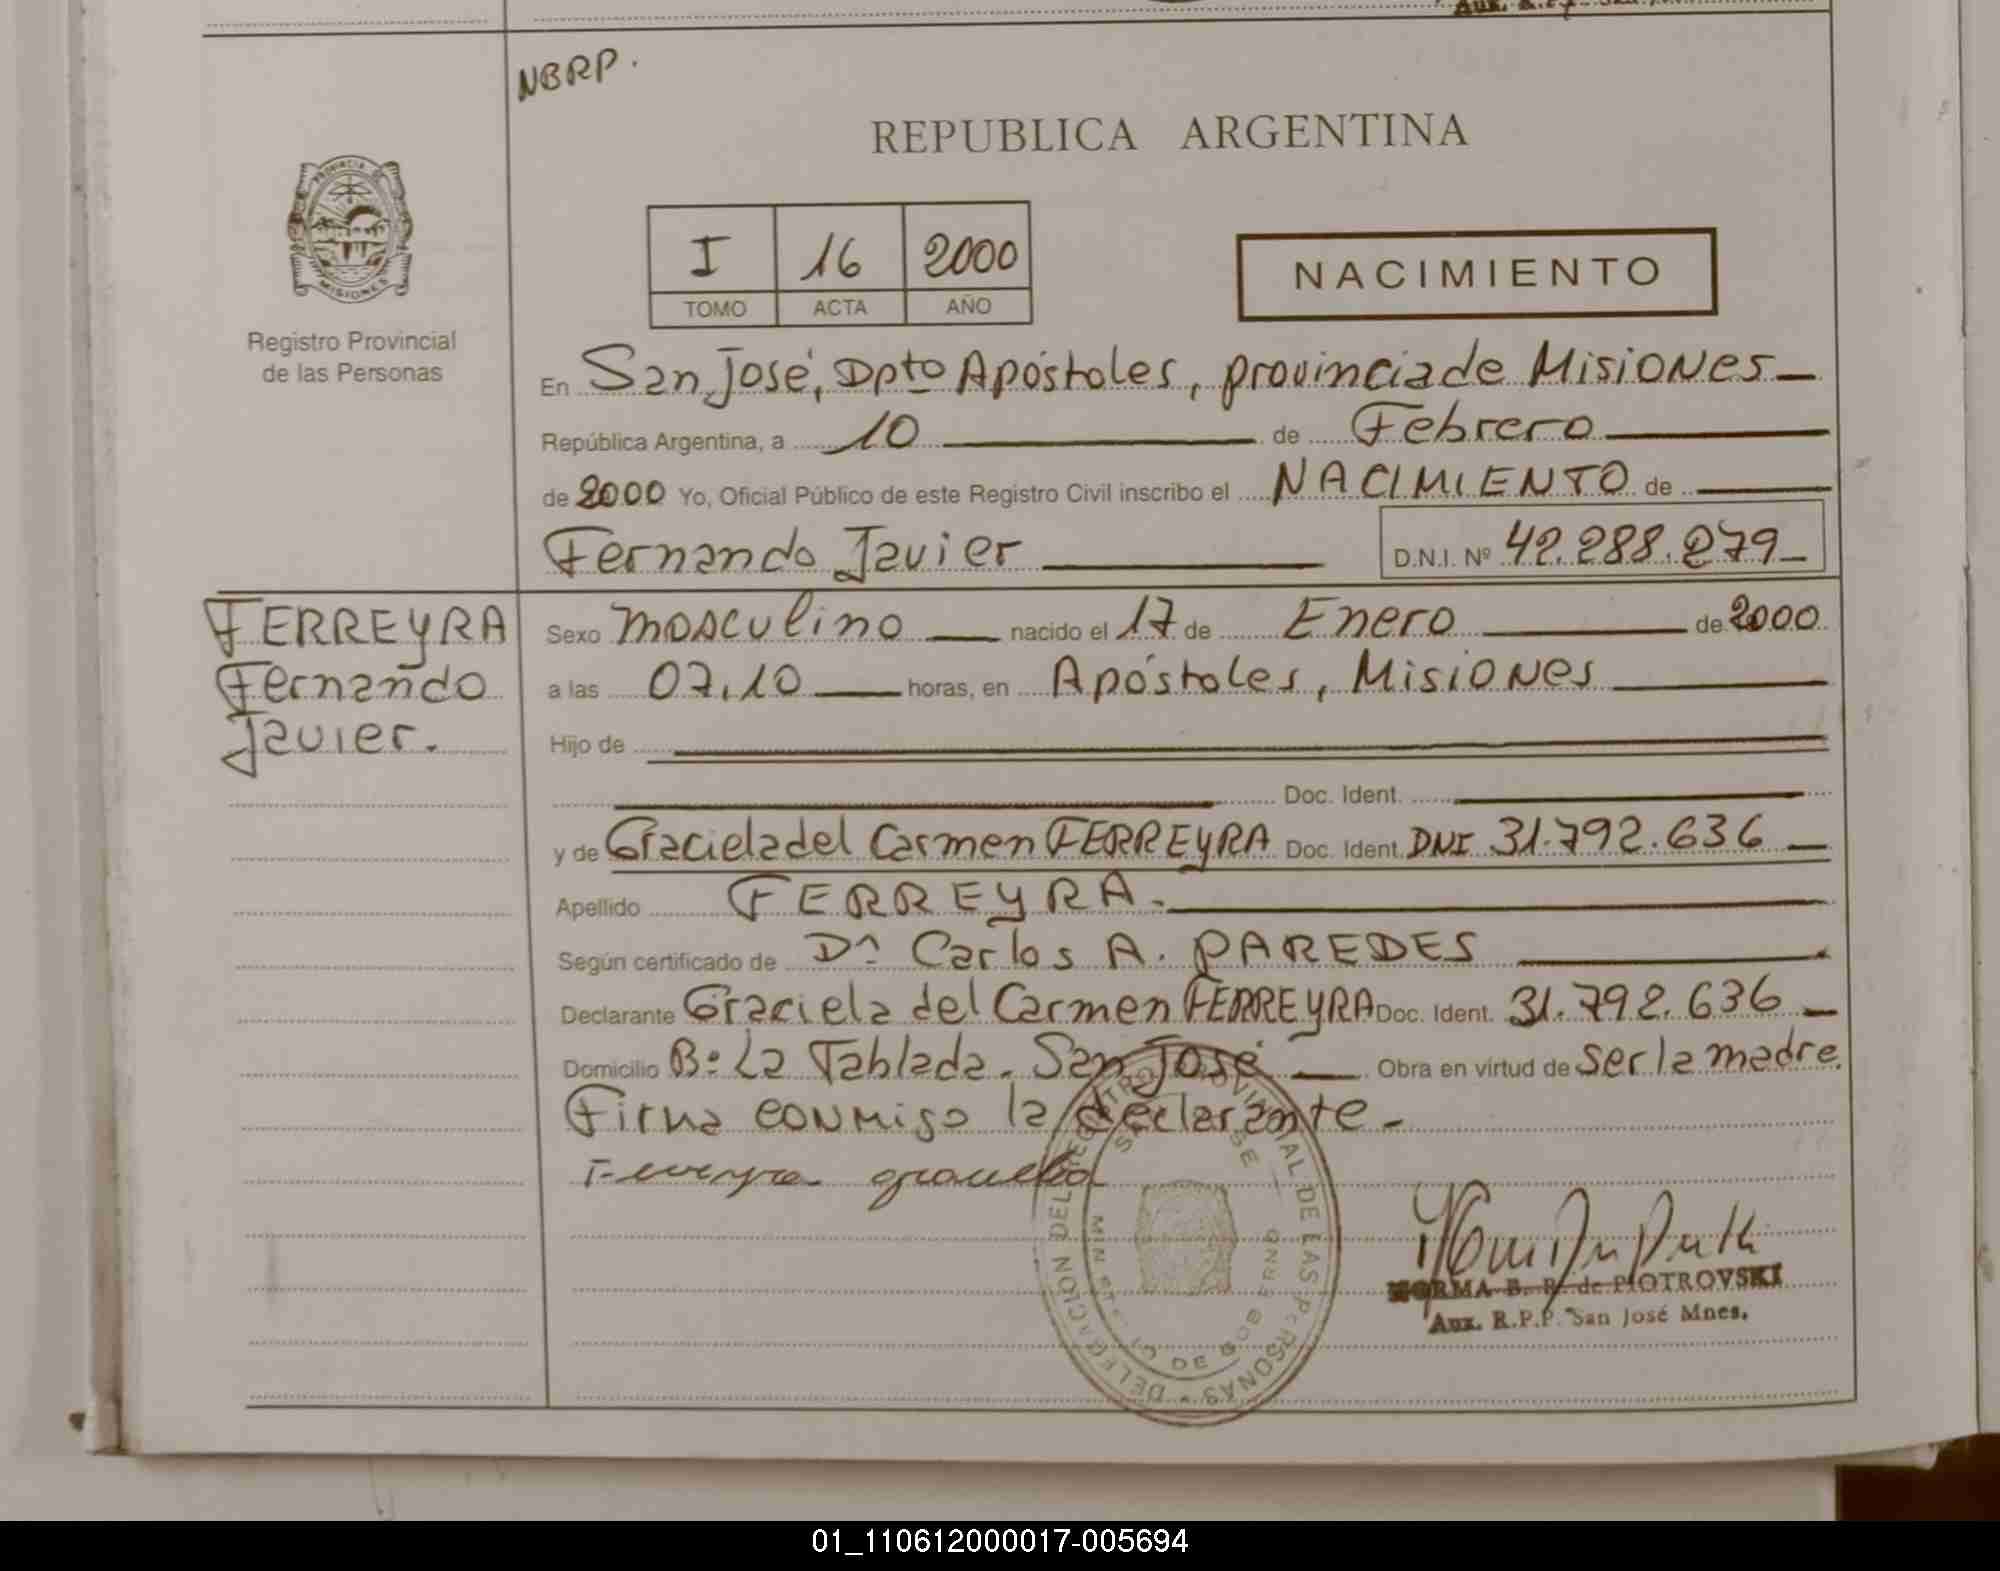 NBRP.
REPUBLICA ARGENTINA
PROVINCIA DE
MISIONES
Registro Provincial
de las Personas
I 16 2000
TOMO ACTA AÑO
NACIMIENTO
En San José, Dpto Apóstoles, provincia de Misiones
República Argentina, a 10 de Febrero
de 2000 Yo, Oficial Público de este Registro Civil inscribo el NACIMIENTO de
Fernando Javier D.N.I. Nº 42.288.279
FERREYRA
Fernando
Javier.
Sexo masculino nacido el 17 de Enero de 2000
a las 07,10 horas, en Apóstoles, Misiones
Hijo de
Doc. Ident.
y de Graciela del Carmen FERREYRA Doc. Ident. DNI 31.792.636
Apellido FERREYRA.
Según certificado de Dr. Carlos A. PAREDES
Declarante Graciela del Carmen FERREYRA Doc. Ident. 31.792.636
Domicilio Bº La Tablada. San José Obra en virtud de ser la madre.
Firma conmigo la declarante.-
Ferreyra graciela
DELEGACION DEL REGISTRO PROVINCIAL DE LAS PERSONAS
NORMA B. R. de PIOTROVSKI
Aux. R.P.P. San José Mnes.
01_110612000017-005694